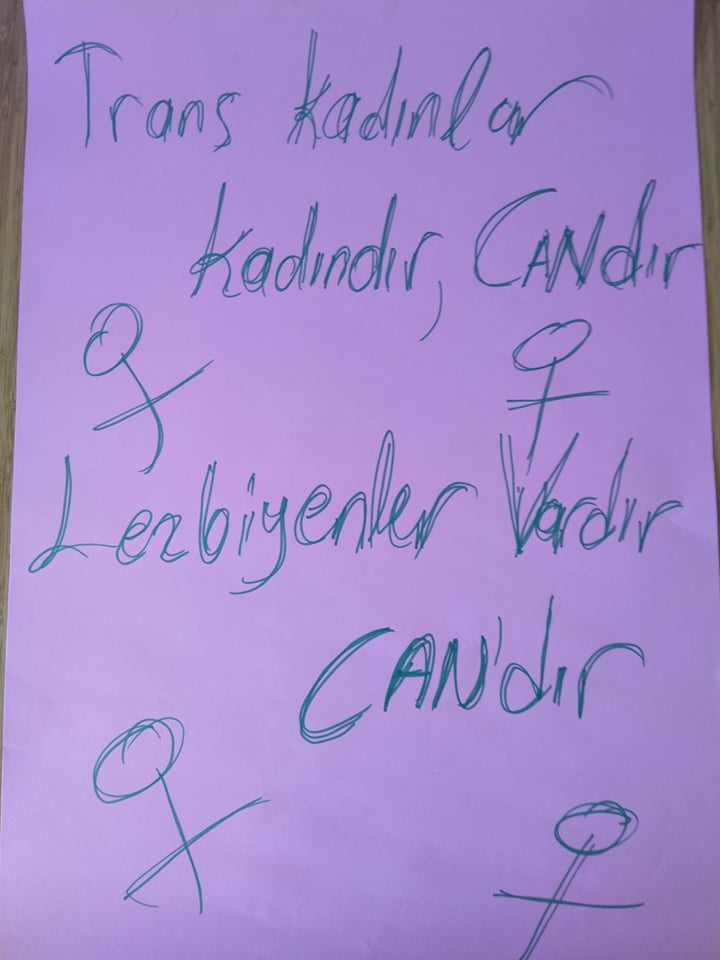 Trans kadınlar
kadındır, CANdır
Lezbiyenler Vardır
CAN'dır